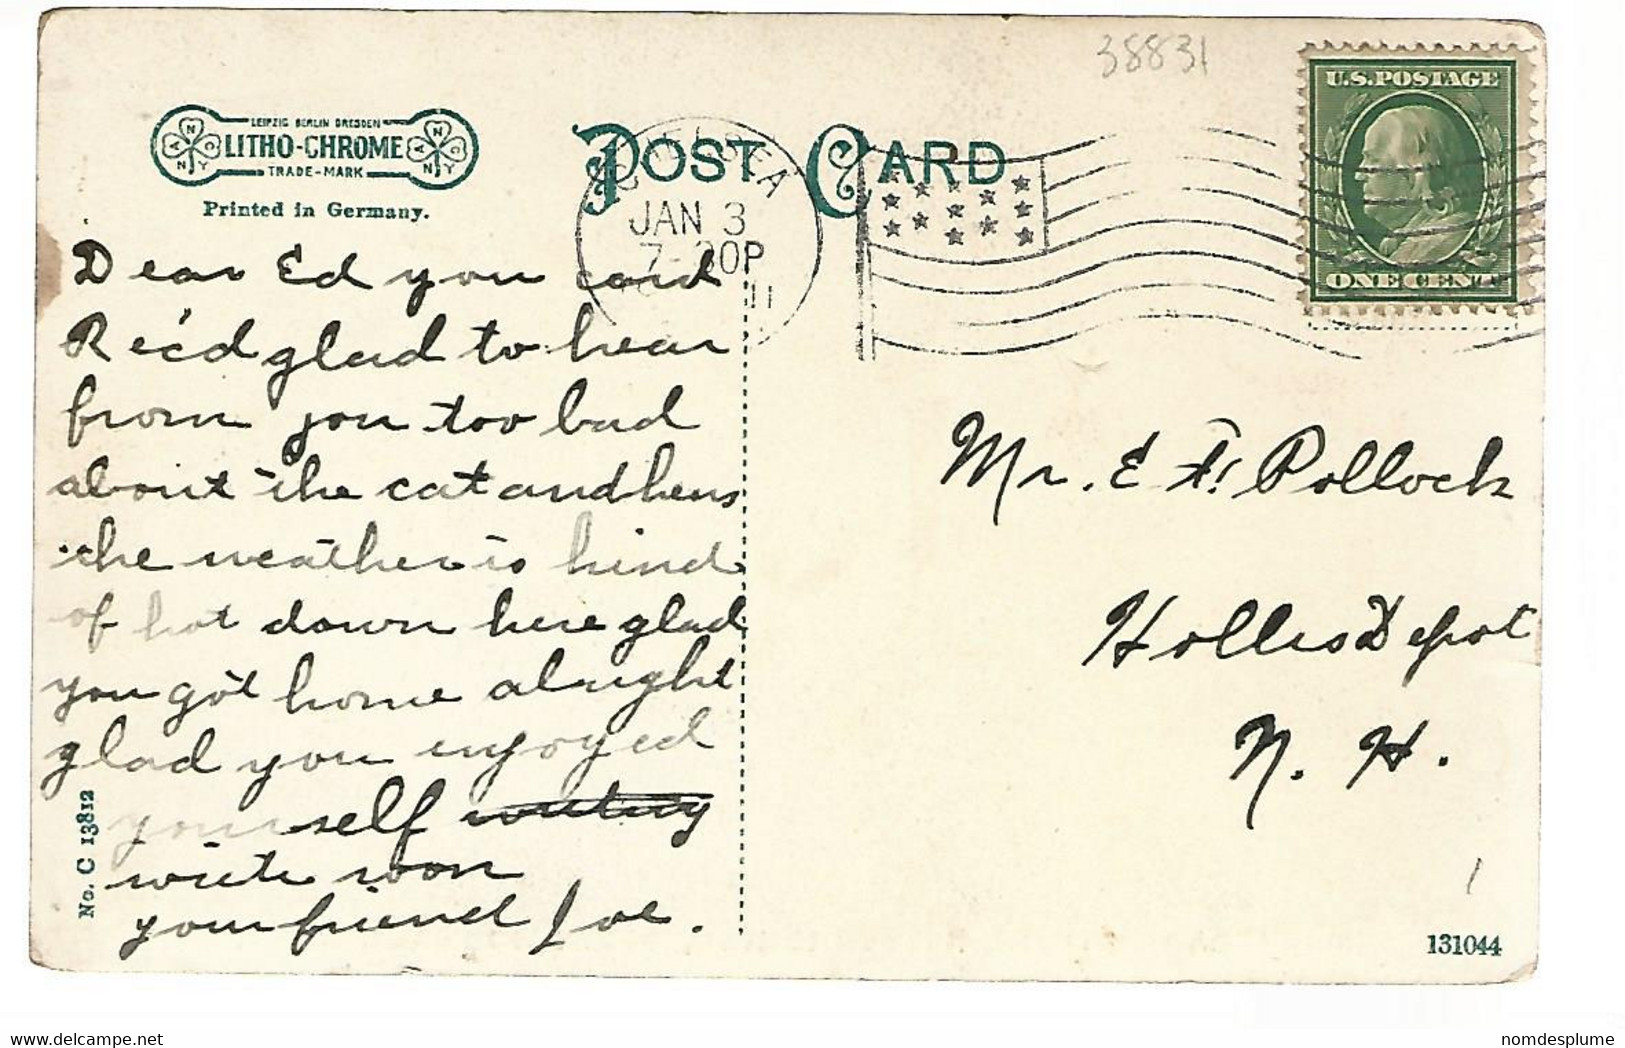 38831
U.S. POSTAGE
ONE CENT
LEIPZIG BERLIN DRESDEN
LITHO-CHROME
TRADE-MARK
Printed in Germany.
POST CARD
CHELSEA
JAN 3
7-30P
11
Dear Ed you card
Rec'd glad to hear
from you too bad
about the cat and hens
the weather is kind
of hot down here glad
you got home alright
glad you enjoyed
yourself
write soon
your friend Joe.
Mr. E F. Pollock
Hollis Depot
N. H.
No. C 13812
131044
nomdesplume
www.delcampe.net